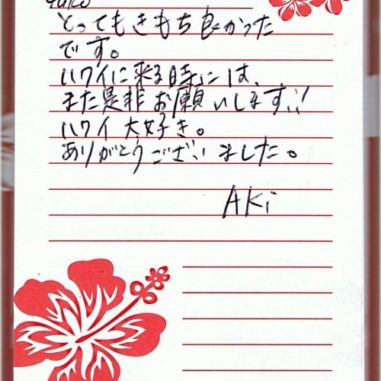 とってもきもち良かった
です。
ハワイに来る時には、
また是非お願いします!!
ハワイ大好き。
ありがとうございました。
AKi